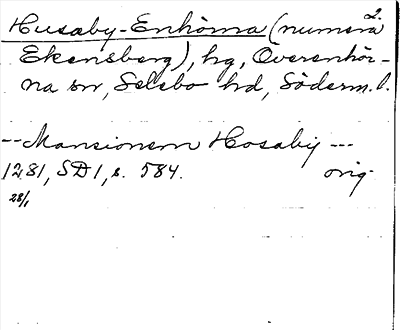 2.
Husaby-Enhörna (numera
Ekensberg), hg, Överenhör-
na sn, Selebo hd, Söderm. l.
-- Mansionem Hosaby ---
1281, SD 1, s. 584. orig.
28/1